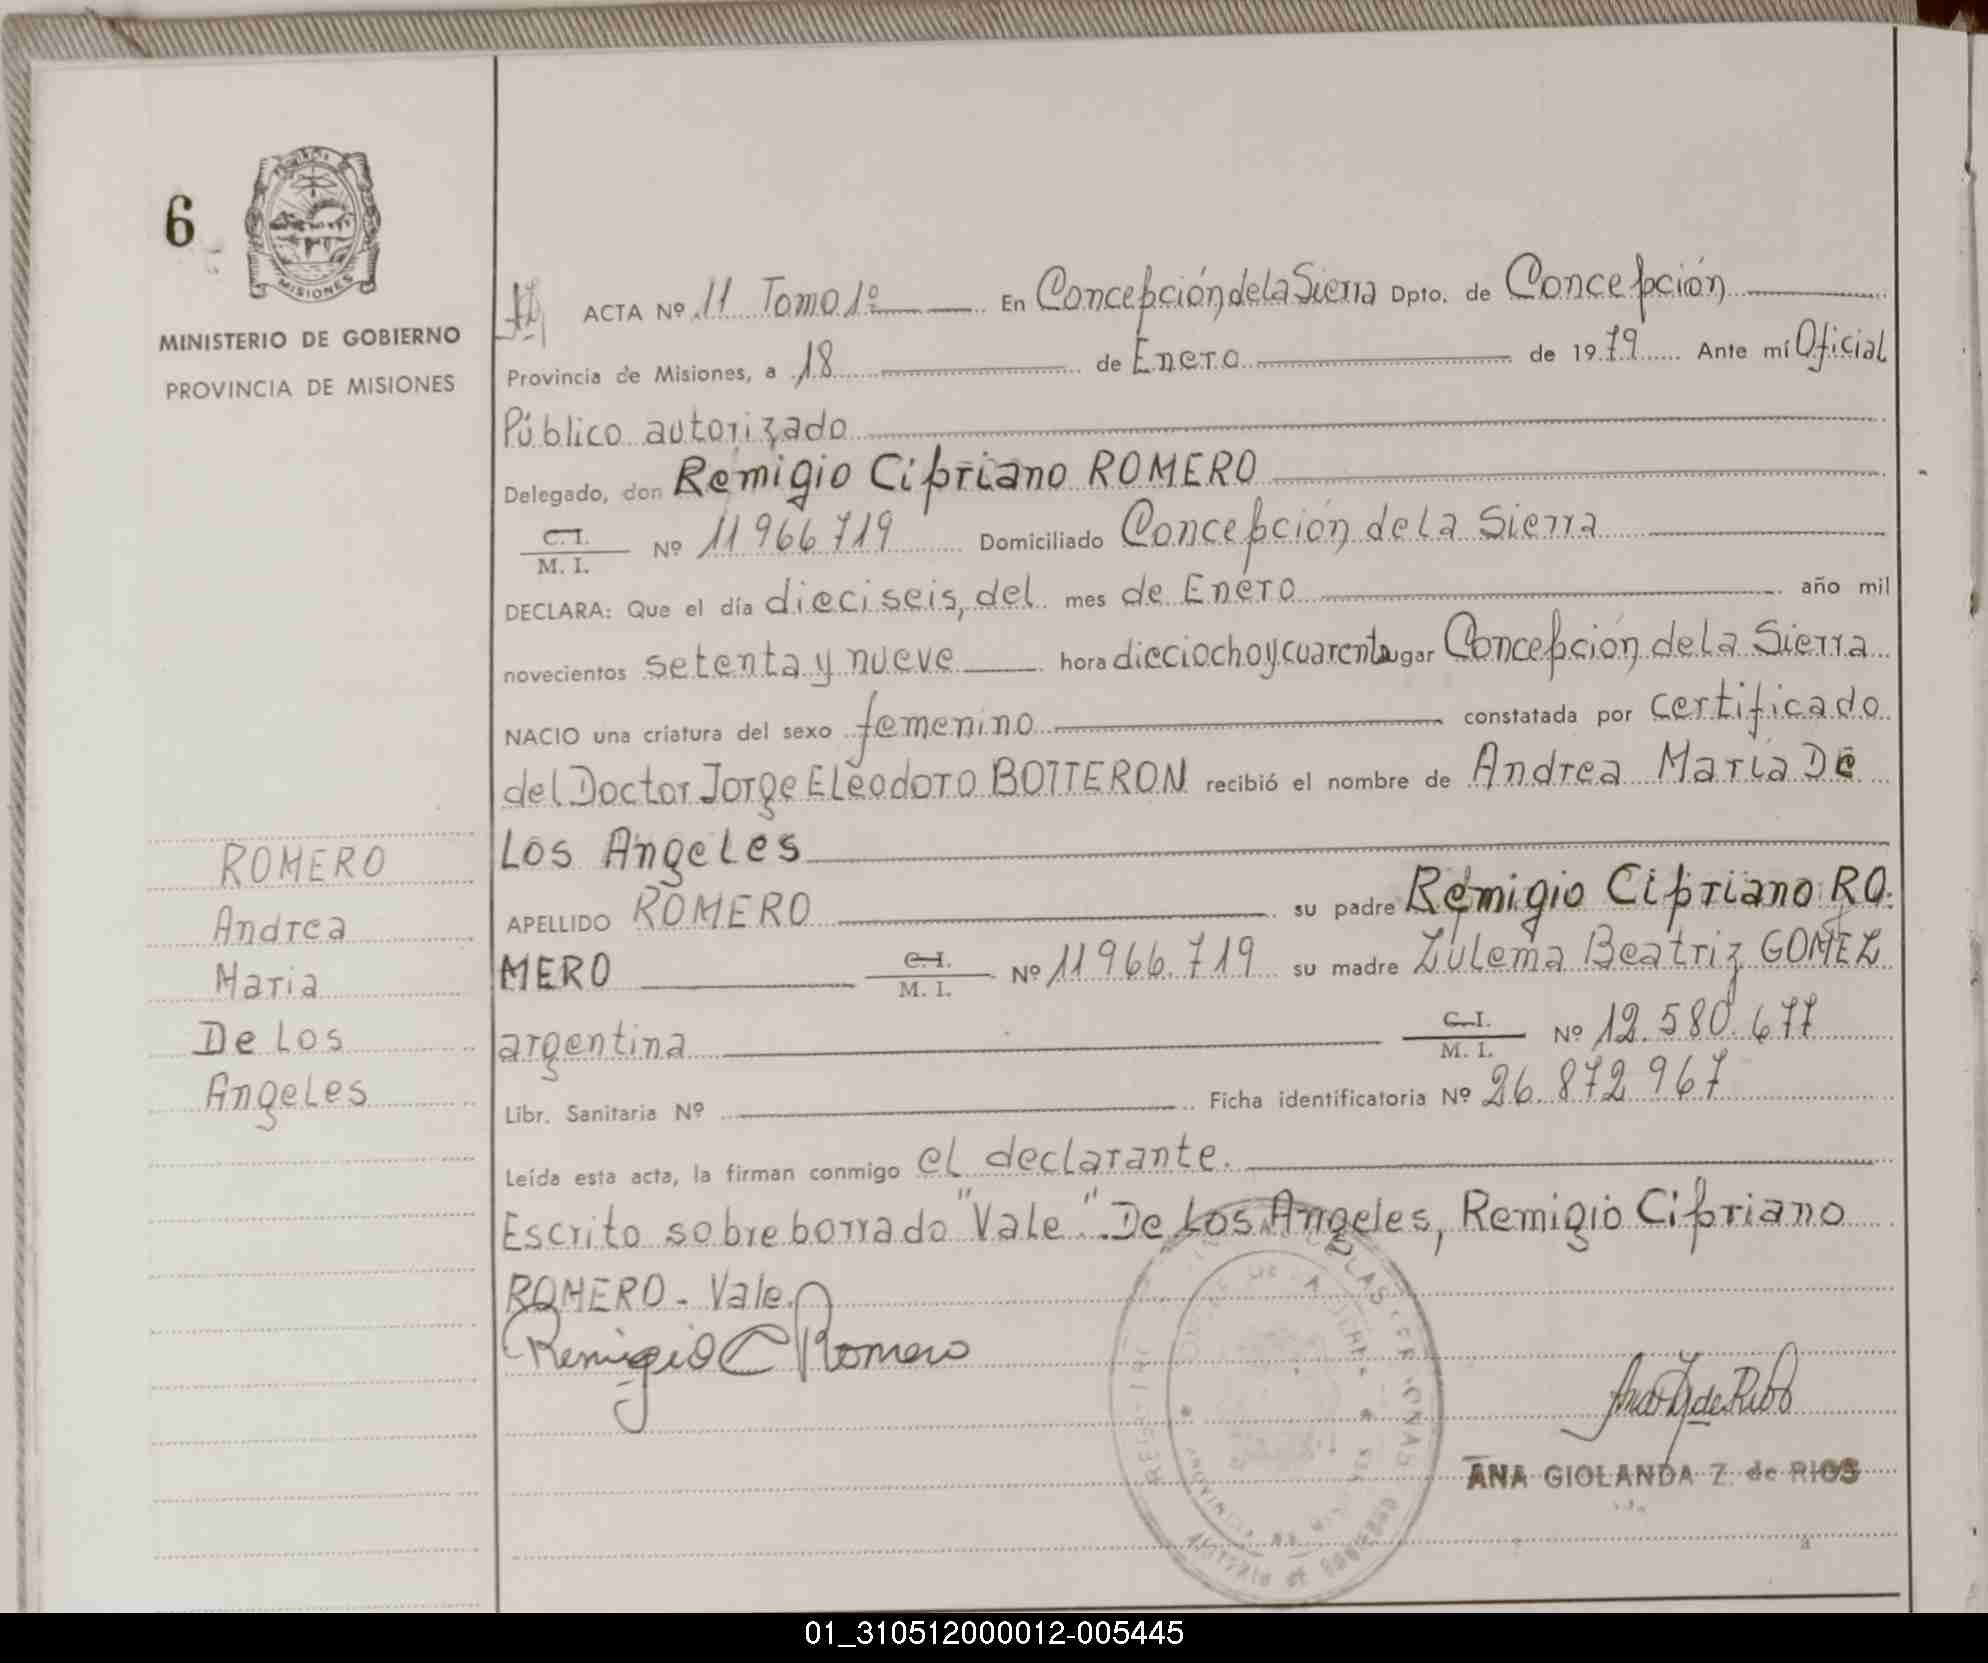 6
MISIONES
MINISTERIO DE GOBIERNO
PROVINCIA DE MISIONES
ROMERO
Andrea
Maria
De Los
Angeles
ACTA Nº 11 Tomo 1º En Concepción de la Sierra Dpto. de Concepción
Provincia de Misiones, a 18 de Enero de 1979 Ante mí Oficial
Público autorizado
Delegado, don Remigio Cipriano ROMERO
C. I.
M. I. Nº 11966719 Domiciliado Concepción de la Sierra
DECLARA: Que el día dieciseis, del mes de Enero año mil
novecientos setenta y nueve hora dieciocho y cuarenta lugar Concepción de la Sierra
NACIO una criatura del sexo femenino constatada por certificado
del Doctor Jorge Eleodoro BOTTERON recibió el nombre de Andrea María De
Los Angeles
APELLIDO ROMERO su padre Remigio Cipriano RO.
MERO C. I. M. I. Nº 11966.719 su madre Zulema Beatriz GOMEZ
argentina C. I. M. I. Nº 12.580.677
Libr. Sanitaria Nº Ficha identificatoria Nº 26.872967
Leída esta acta, la firman conmigo el declarante.
Escrito sobre borrado "Vale". De Los Angeles, Remigio Cipriano
ROMERO - Vale.
Remigio C Romero
ANA GIOLANDA Z. de RIOS
01_310512000012-005445